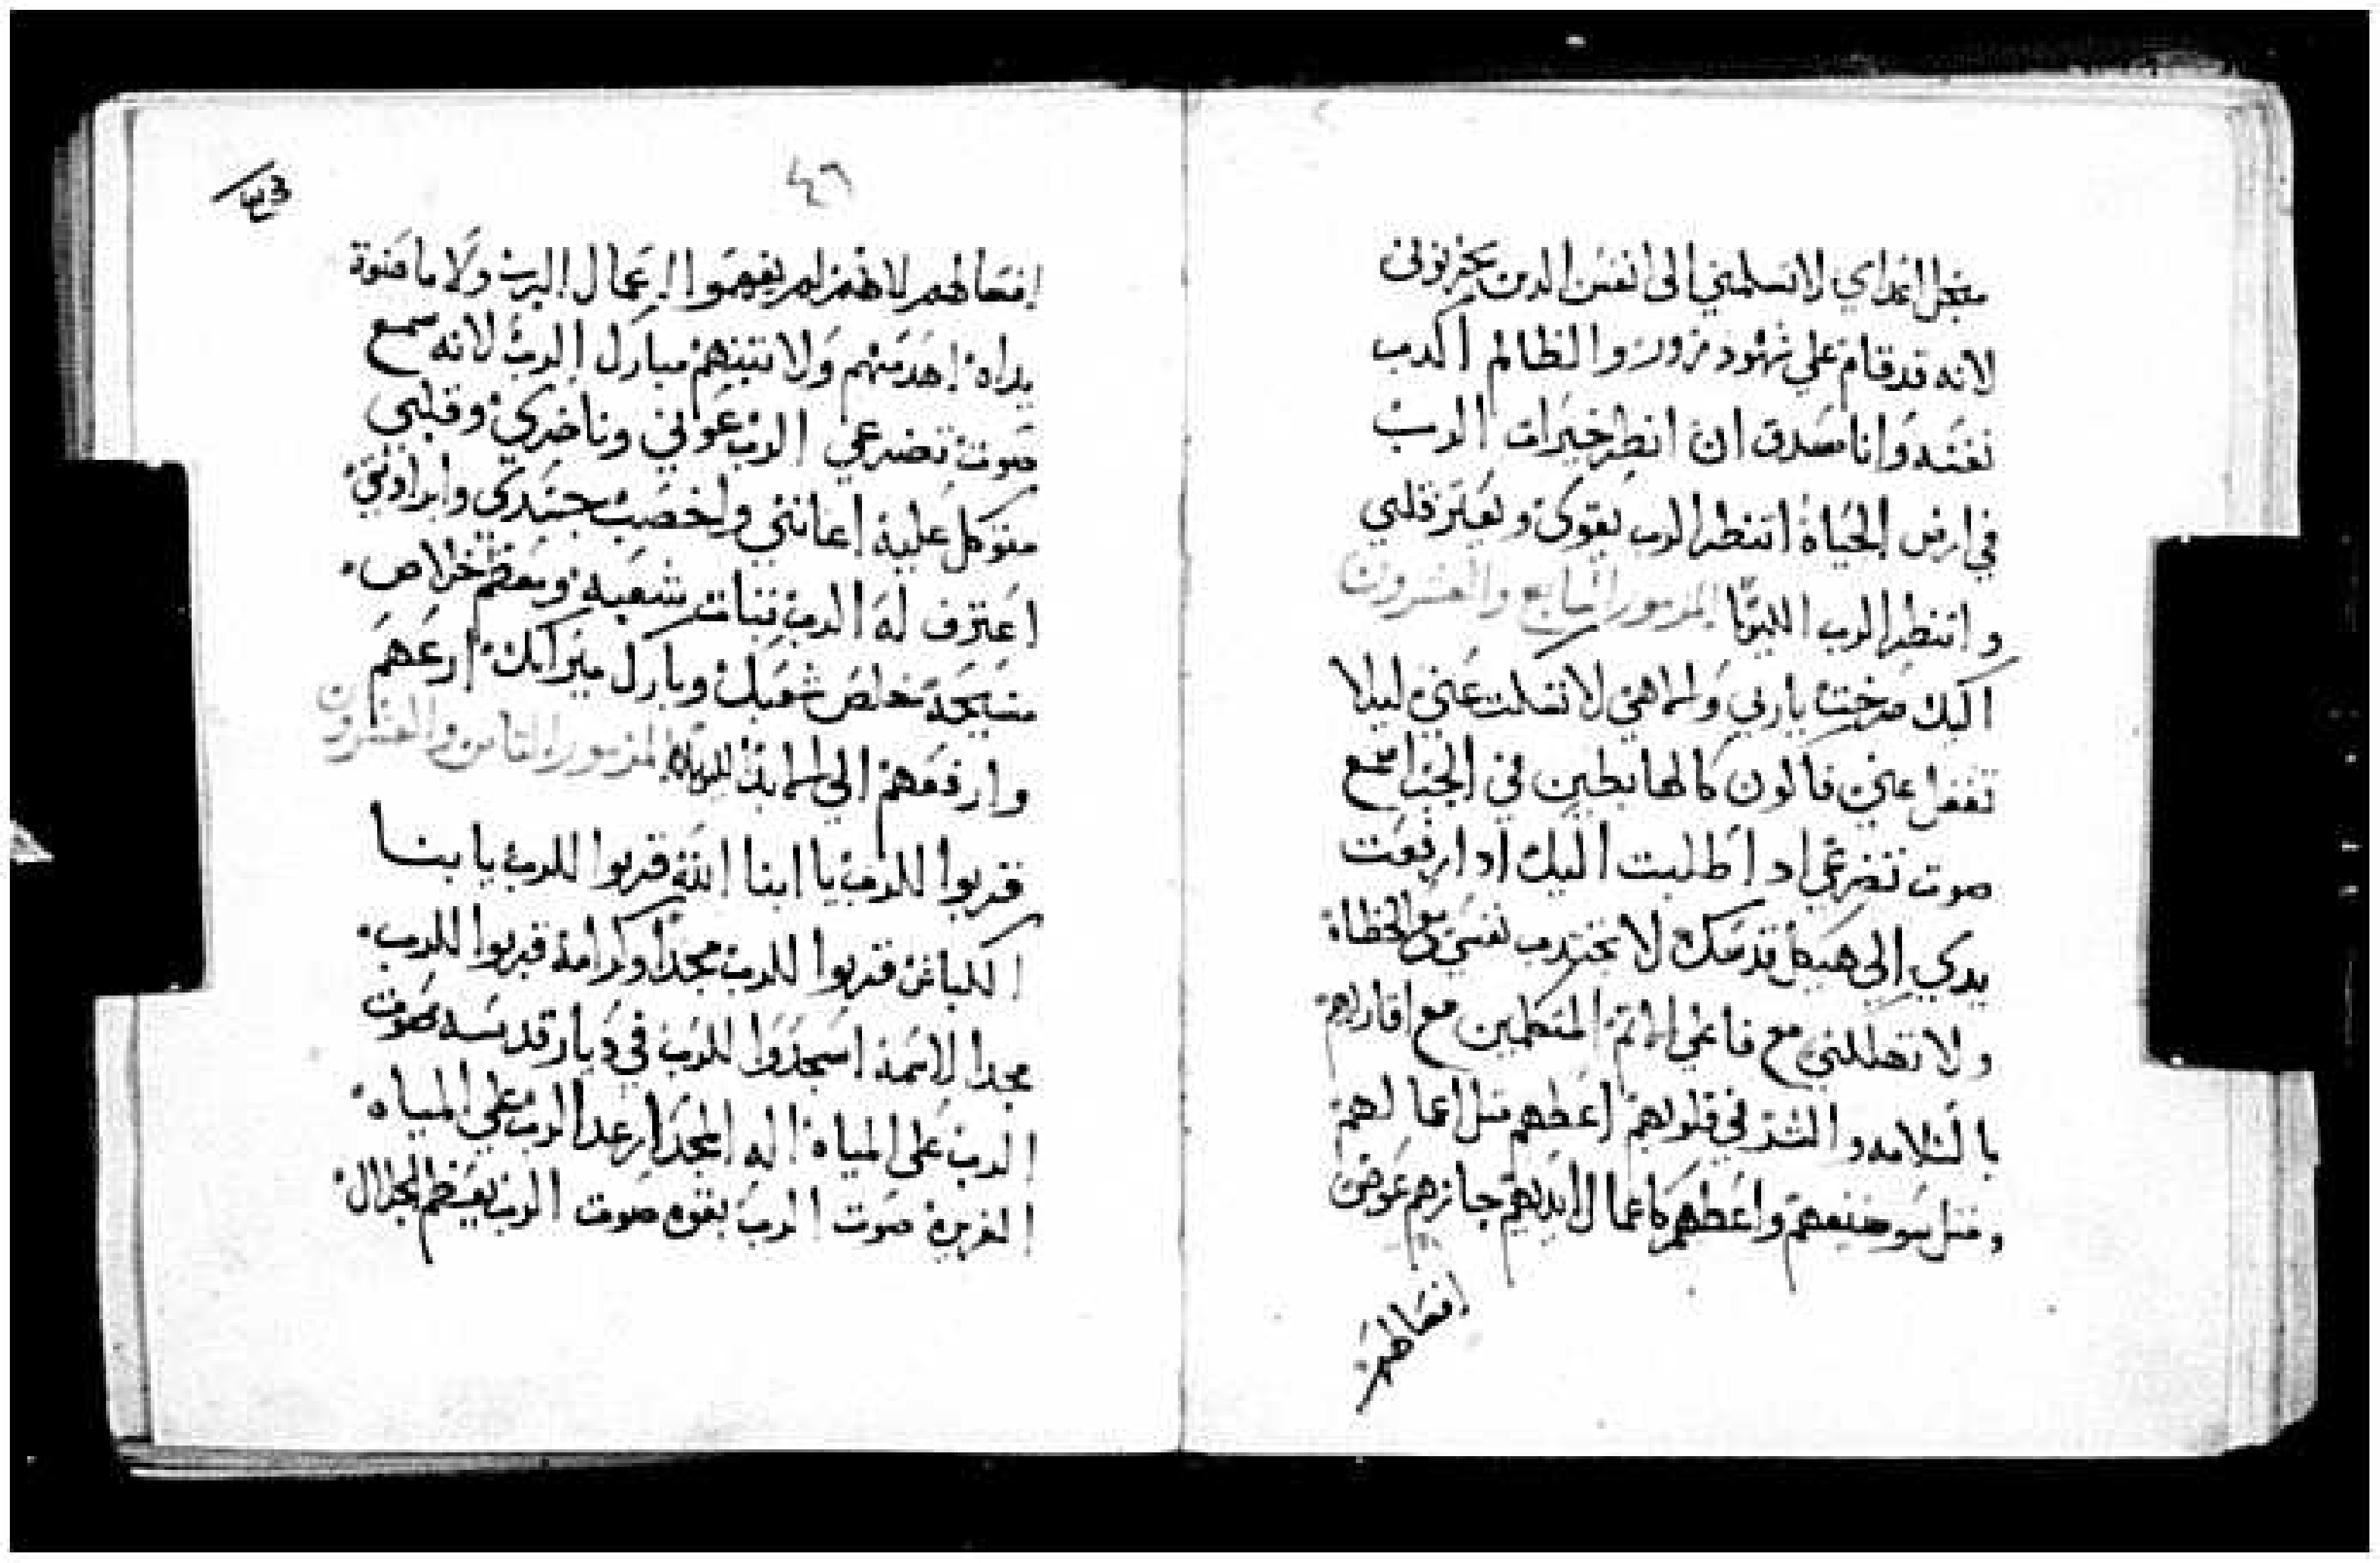 منجل اعداي لا تسلمني الى انفس الدين يحزنونى
لانه قد قام علي شهود زور والظالم اكدب
نفسه وانا مصدق ان انظر خيرات الرب
في ارض الحياة انتظر الرب تقوى ويعتز قلبي
وانتظر الرب الليلويا المزمور السابع والعشرون
اليك صرخت ياربي والاهي لا تسكت عني ليلا
تغفل عني فاكون كالهابطين في الجب اسمع
صوت تضرعي اد اطلبت اليك اد ارفعت
يدي الي هيكل قدسك لا تجتدب نفسي مع الخطاة
ولا تهلكني مع فاعلي الاتم المتكلمين مع اقاربهم
بالسلامه والشر في قلوبهم اعطهم متل اعمالهم
ومتل سو صنيعهم واعطهم كاعمال ايديهم جازهم عوض
افعالهم
٤٦
٤٣
افعالهم لانهم لم يفهموا اعمال الرب ولا ما صنعة
يداه اهدمهم ولا تبنهم مبارك الرب لانه سمع
صوت تضرعي الرب عوني وناصري وقلبي
متوكل عليه اعانني واخصب جسدي وبارادتي
اعترف له الرب تبات شعبه ومعظم خلاص
مسيحه خلص شعبك وبارك ميراتك ارعهم
وارفعهم الي الابد الليلويا المزمور التامن والعشرون
قربوا للرب يا ابنا الله قربوا للرب يا بنا
الكباش قربوا للرب مجدا وكرامة قربوا للرب
مجدا لاسمه اسجدوا للرب في ديار قدسه صوت
الرب على المياه اله المجد ارعد الرب علي المياه
الغزيره صوت الرب بقوه صوت الرب بعظم الجلال